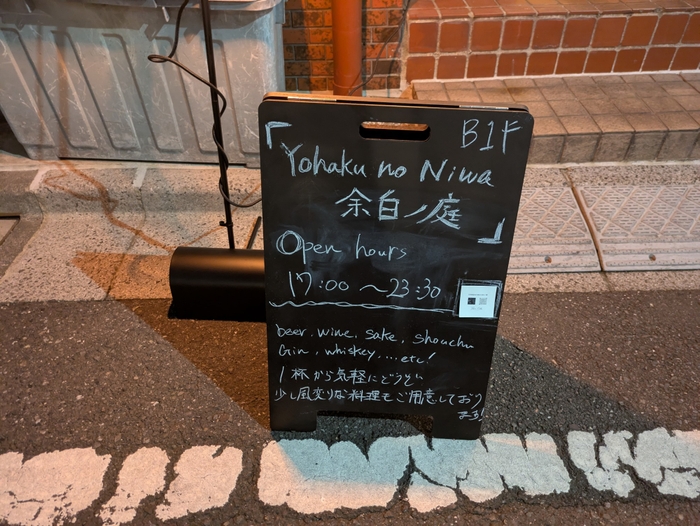 B1F
『Yohaku no Niwa
余白ノ庭』
Open hours
17:00 〜23:30
beer, wine, sake, shouchu
Gin, whiskey,....etc!
1杯から気軽にどうぞ
少し風変りな料理もご用意しており
ます!